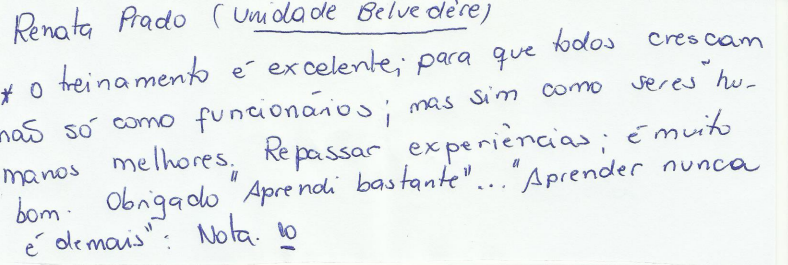 Renata Prado (Unidade Belvedére)
* o treinamento é excelente; para que todos crescam
naõ só como funcionários; mas sim como seres "hu-
manos melhores. Repassar experiências; é muito
bom. Obrigado "Aprendi bastante"... "Aprender nunca
é demais": Nota. 10